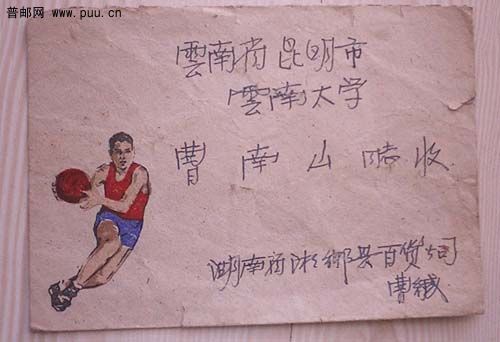 普邮网 www.puu.cn
雲南省昆明市
雲南大学
曹南山同志收
湖南省湘鄉县百货公司
曹缄